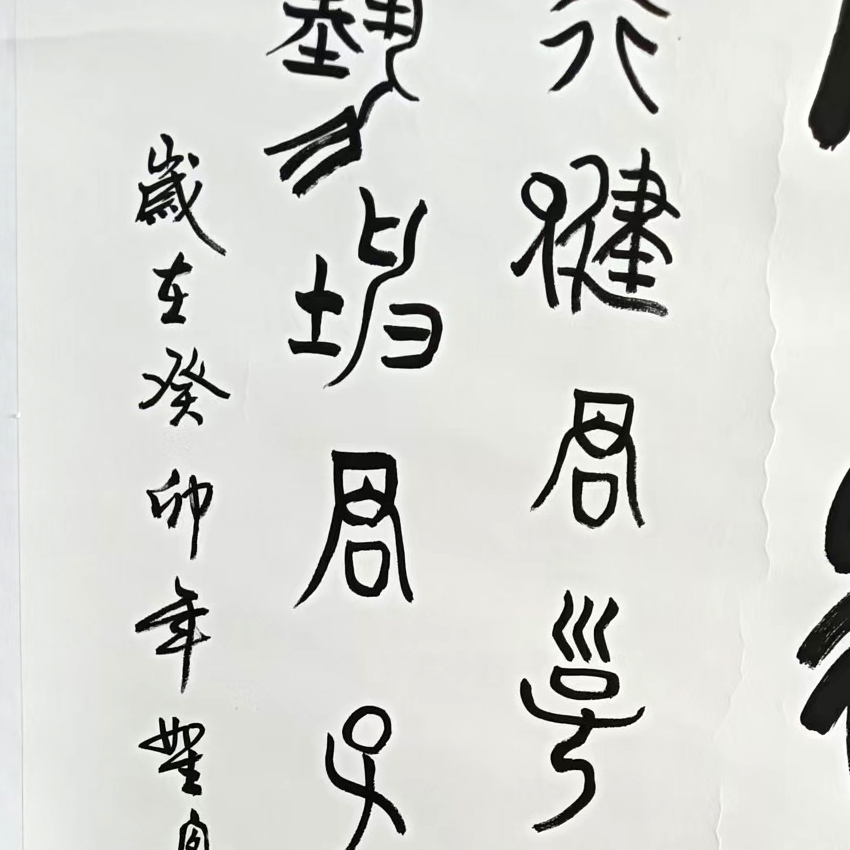 行健君子
勢坤君子
歲在癸卯年